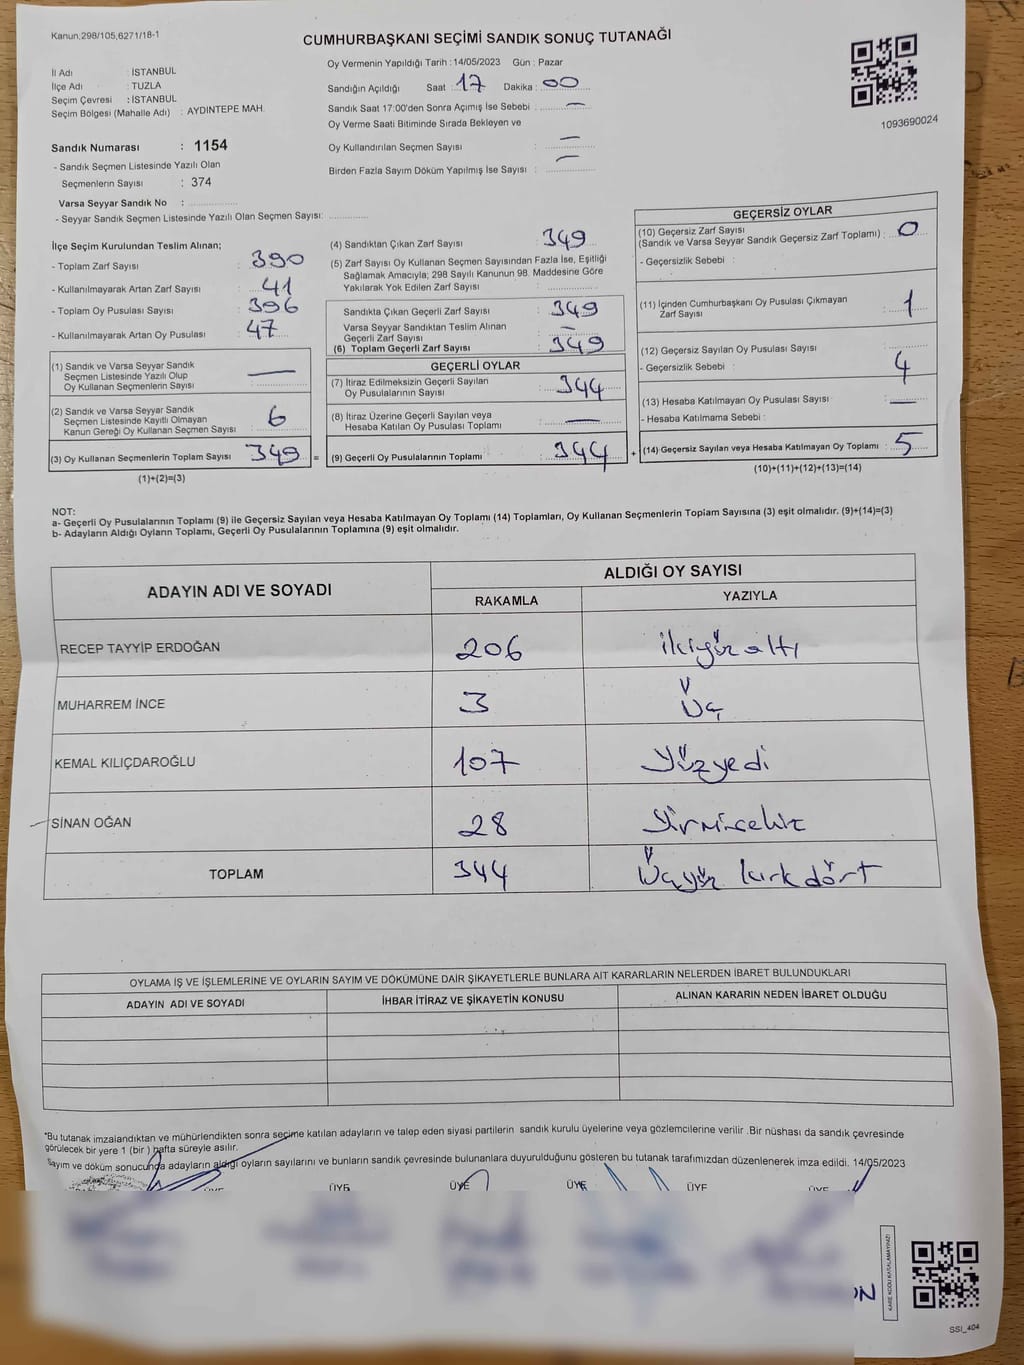 Kanun,298/105,6271/18-1
CUMHURBAŞKANI SEÇİMİ SANDIK SONUÇ TUTANAĞI
İl Adı : İSTANBUL
İlçe Adı : TUZLA
Seçim Çevresi : İSTANBUL
Seçim Bölgesi (Mahalle Adı) : AYDINTEPE MAH.
Oy Vermenin Yapıldığı Tarih : 14/05/2023 Gün : Pazar
Sandığın Açıldığı Saat : 17 Dakika : 00
Sandık Saat 17:00'den Sonra Açımış İse Sebebi : —
Oy Verme Saati Bitiminde Sırada Bekleyen ve
Oy Kullandırılan Seçmen Sayısı : —
Birden Fazla Sayım Döküm Yapılmış İse Sayısı : —
1093690024
Sandık Numarası : 1154
- Sandık Seçmen Listesinde Yazılı Olan
Seçmenlerin Sayısı : 374
Varsa Seyyar Sandık No :
- Seyyar Sandık Seçmen Listesinde Yazılı Olan Seçmen Sayısı:
İlçe Seçim Kurulundan Teslim Alınan;
- Toplam Zarf Sayısı : 390
- Kullanılmayarak Artan Zarf Sayısı : 41
- Toplam Oy Pusulası Sayısı : 396
- Kullanılmayarak Artan Oy Pusulası : 47
(1) Sandık ve Varsa Seyyar Sandık
Seçmen Listesinde Yazılı Olup
Oy Kullanan Seçmenlerin Sayısı : —
(2) Sandık ve Varsa Seyyar Sandık
Seçmen Listesinde Kayıtlı Olmayan
Kanun Gereği Oy Kullanan Seçmen Sayısı : 6
(3) Oy Kullanan Seçmenlerin Toplam Sayısı : 349 =
(1)+(2)=(3)
(4) Sandıktan Çıkan Zarf Sayısı : 349
(5) Zarf Sayısı Oy Kullanan Seçmen Sayısından Fazla İse, Eşitliği
Sağlamak Amacıyla; 298 Sayılı Kanunun 98. Maddesine Göre
Yakılarak Yok Edilen Zarf Sayısı :
Sandıkta Çıkan Geçerli Zarf Sayısı : 349
Varsa Seyyar Sandıktan Teslim Alınan
Geçerli Zarf Sayısı : —
(6) Toplam Geçerli Zarf Sayısı : 349
GEÇERLİ OYLAR
(7) İtiraz Edilmeksizin Geçerli Sayılan
Oy Pusulalarının Sayısı : 344
(8) İtiraz Üzerine Geçerli Sayılan veya
Hesaba Katılan Oy Pusulası Toplamı : —
(9) Geçerli Oy Pusulalarının Toplamı : 344 +
GEÇERSİZ OYLAR
(10) Geçersiz Zarf Sayısı
(Sandık ve Varsa Seyyar Sandık Geçersiz Zarf Toplamı) : 0
- Geçersizlik Sebebi :
(11) İçinden Cumhurbaşkanı Oy Pusulası Çıkmayan
Zarf Sayısı : 1
(12) Geçersiz Sayılan Oy Pusulası Sayısı : 4
- Geçersizlik Sebebi :
(13) Hesaba Katılmayan Oy Pusulası Sayısı : —
- Hesaba Katılmama Sebebi :
(14) Geçersiz Sayılan veya Hesaba Katılmayan Oy Toplamı : 5
(10)+(11)+(12)+(13)=(14)
NOT:
a- Geçerli Oy Pusulalarının Toplamı (9) ile Geçersiz Sayılan veya Hesaba Katılmayan Oy Toplamı (14) Toplamları, Oy Kullanan Seçmenlerin Toplam Sayısına (3) eşit olmalıdır. (9)+(14)=(3)
b- Adayların Aldığı Oyların Toplamı, Geçerli Oy Pusulalarının Toplamına (9) eşit olmalıdır.
ADAYIN ADI VE SOYADI
ALDIĞI OY SAYISI
RAKAMLA YAZIYLA
RECEP TAYYİP ERDOĞAN 206 ikiyüz altı
MUHARREM İNCE 3 Üç
KEMAL KILIÇDAROĞLU 107 Yüzyedi
SİNAN OĞAN 28 Yirmisekiz
TOPLAM 344 Üçyüz kırk dört
OYLAMA İŞ VE İŞLEMLERİNE VE OYLARIN SAYIM VE DÖKÜMÜNE DAİR ŞİKAYETLERLE BUNLARA AİT KARARLARIN NELERDEN İBARET BULUNDUKLARI
ADAYIN ADI VE SOYADI İHBAR İTİRAZ VE ŞİKAYETİN KONUSU ALINAN KARARIN NEDEN İBARET OLDUĞU
*Bu tutanak imzalandıktan ve mühürlendikten sonra seçime katılan adayların ve talep eden siyasi partilerin sandık kurulu üyelerine veya gözlemcilerine verilir .Bir nüshası da sandık çevresinde
görülecek bir yere 1 (bir ) hafta süreyle asılır.
Sayım ve döküm sonucunda adayların aldığı oyların sayılarını ve bunların sandık çevresinde bulunanlara duyurulduğunu gösteren bu tutanak tarafımızdan düzenlenerek imza edildi. 14/05/2023
ÜYE ÜYE ÜYE ÜYE ÜYE ÜYE
SSI_404